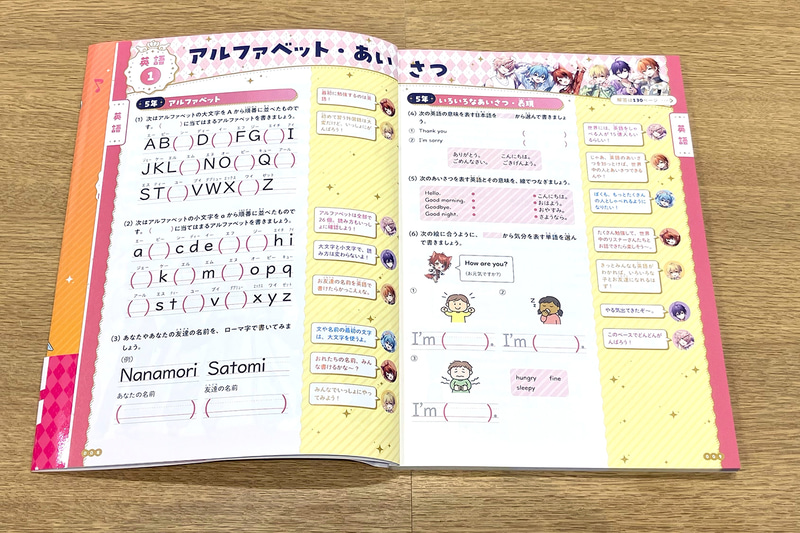 英語
1
アルファベット・あいさつ
英語
5年 アルファベット
(1) 次はアルファベットの大文字をAから順番に並べたもので
す。( )に当てはまるアルファベットを書きましょう。
AB( )D( )FG( )I
JKL( )NO( )Q( )
ST( )VWX( )Z
(2) 次はアルファベットの小文字をaから順番に並べたもので
す。( )に当てはまるアルファベットを書きましょう。
a( )cde( )( )hi
( )k( )m( )opq
( )st( )v( )xyz
(3) あなたやあなたの友達の名前を、ローマ字で書いてみま
しょう。
(例)
Nanamori Satomi
あなたの名前 友達の名前
( ) ( )
アルファベットは全部で
26個。読み方もいっし
ょに確認しよう!
大文字と小文字で、読
み方は変わらないよ!
お友達の名前を英語で
書けたらかっこえぇな。
文や名前の最初の文字
は、大文字を使うよ。
おれたちの名前、みん
な書けるかな〜?
みんなでいっしょにやっ
てみよう!
5年 いろいろなあいさつ・表現
(4) 次の英語の意味を表す日本語を から選んで書きましょう。
① Thank you ( )
② I'm sorry ( )
ありがとう。 こんにちは。
ごめんなさい。 ごきげんよう。
(5) 次のあいさつを表す英語とその意味を、線でつなぎましょう。
Hello. ・ ・こんにちは。
Good morning. ・ ・おはよう。
Goodbye. ・ ・おやすみ。
Good night. ・ ・さようなら。
(6) 次の絵に合うように、 から気分を表す単語を選ん
で書きましょう。
How are you?
(お元気ですか?)
① ②
I'm ( ). I'm ( ).
③
hungry fine
sleepy
I'm ( ).
解答は130ページ
英語
世界には、英語をしゃべ
る人が15億人もい
るらしい!
じゃあ、英語のあいさ
つを知っとけば、世界
中の人とあいさつでき
るんや!
ぼくも、もっとたくさん
の人としゃべれるように
なりたい!
たくさん勉強して、世界
中のリスナーさんたちと
お話できたら楽しそう〜。
やる気出てきたぞ〜。
このペースでどんどんが
んばろう!